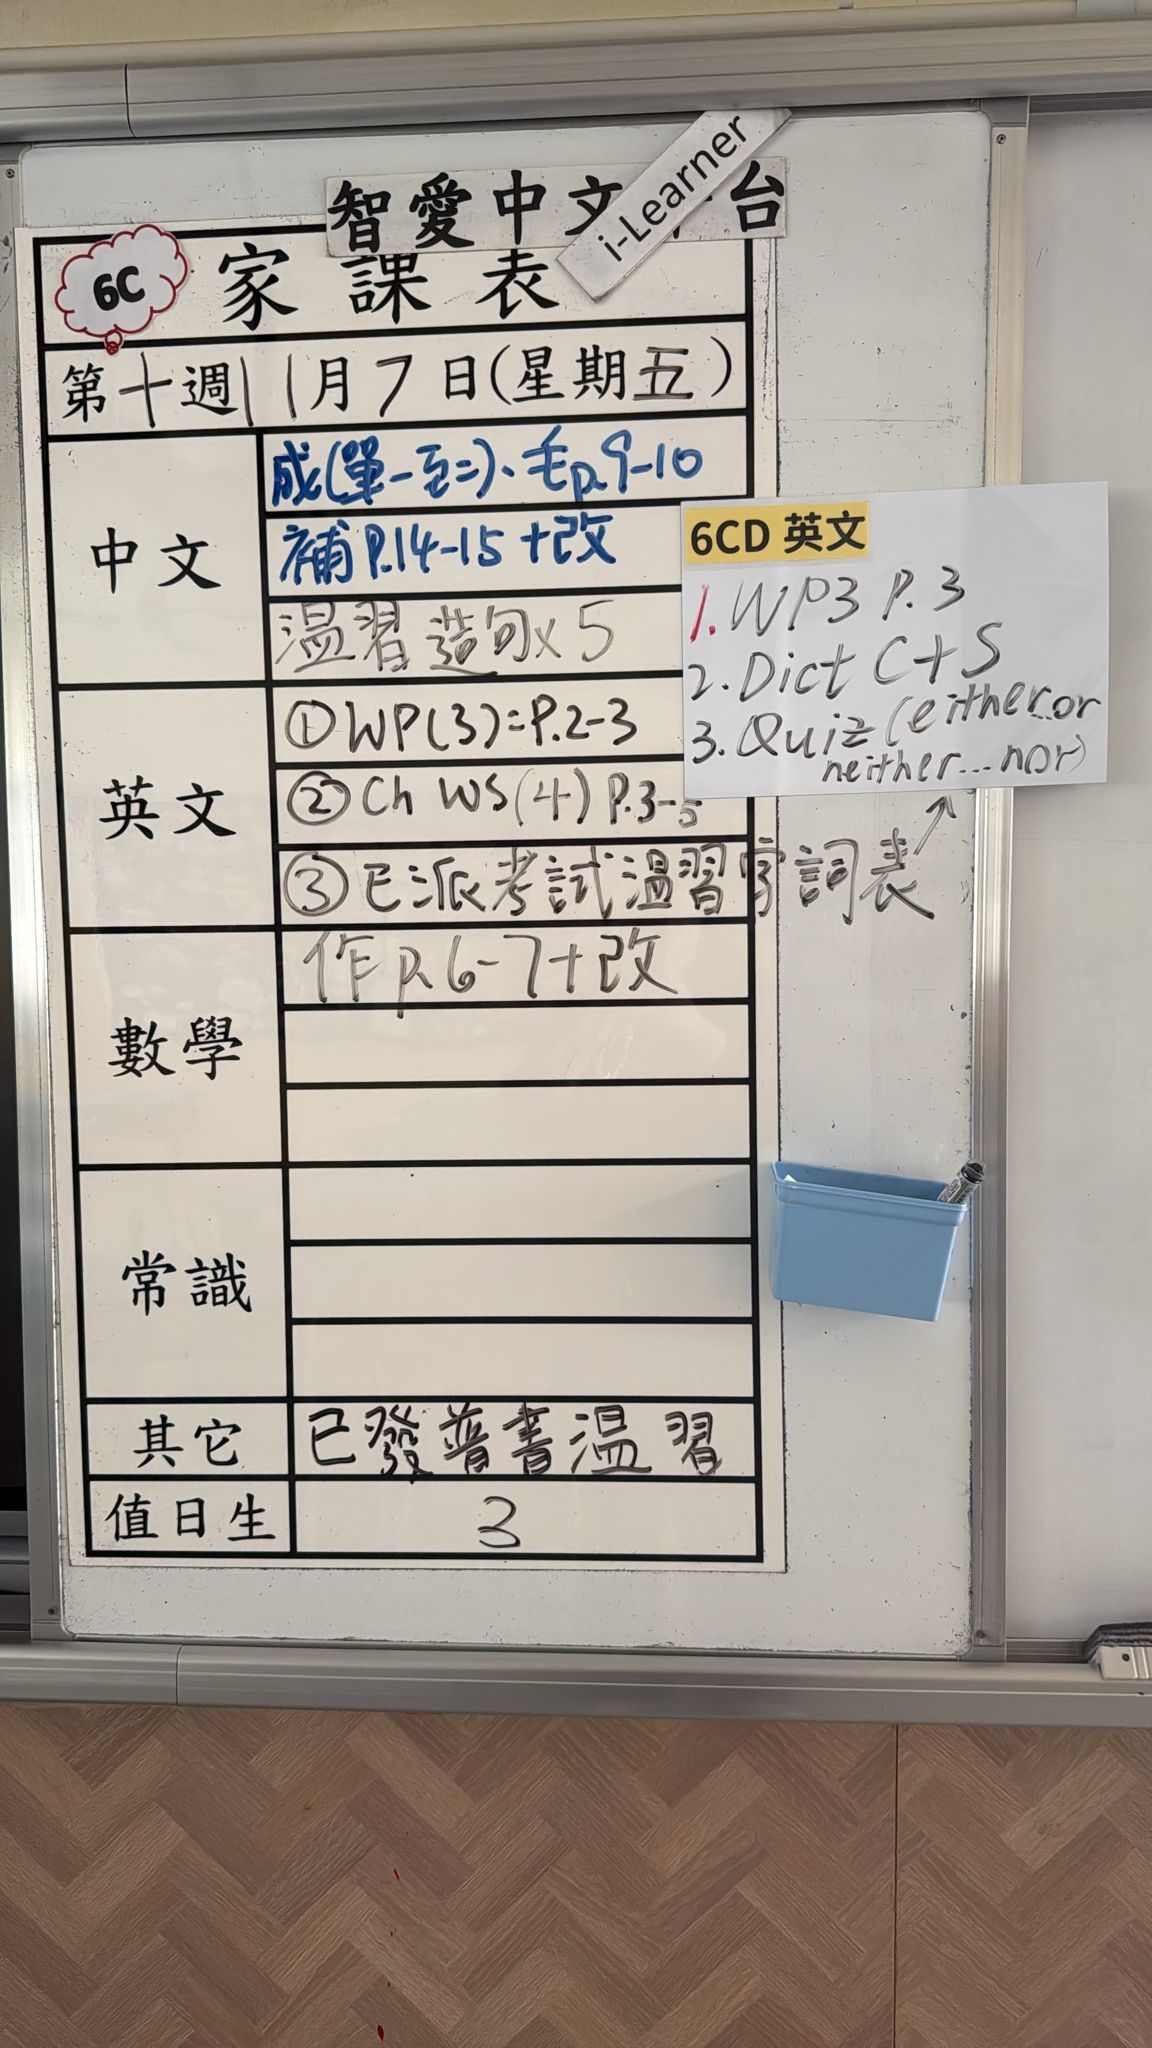 智愛中文 台
i-Learner
6C 家課表
第十週11月7日(星期五)
中文
成(單一至二)、毛p.9-10
補P.14-15+改
温習造句x5
英文
①WP(3)=P.2-3
②Ch WS(4) P.3-5
③已派考試溫習字詞表
6CD 英文
1. WP3 P.3
2. Dict C+S
3. Quiz (either..or
neither...nor)
數學
作p.6-7+改
常識
其它
已發普書温習
值日生
3